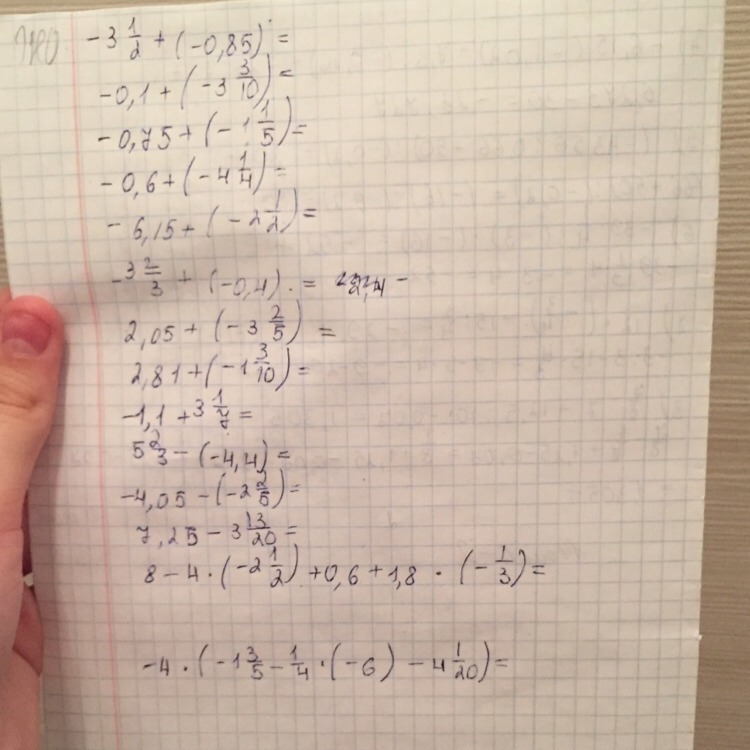 -3 1/2 + (-0,85) =
-0,1 + (-3 3/10) =
-0,75 + (-1 1/5) =
-0,6 + (-4 1/4) =
-6,15 + (-2 1/2) =
-3 2/3 + (-0,4) . =
2,05 + (-3 2/5) =
2,81 + (-1 3/10) =
-1,1 + 3 1/7 =
5 2/3 - (-4,4) =
-4,05 - (-2 2/5) =
7,25 - 3 13/20 =
8 - 4 · (-2 1/2) + 0,6 + 1,8 · (-1/3) =
-4 · (-1 3/5 - 1/4 · (-6) - 4 1/20) =